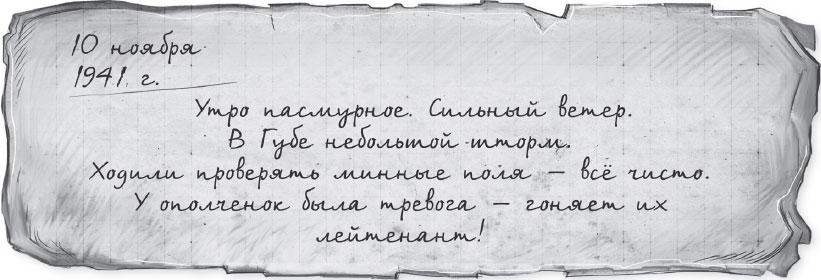 10 ноября
1941 г.
Утро пасмурное. Сильный ветер.
В Губе небольшой шторм.
Ходили проверять минные поля — всё чисто.
У ополченок была тревога — гоняет их
лейтенант!